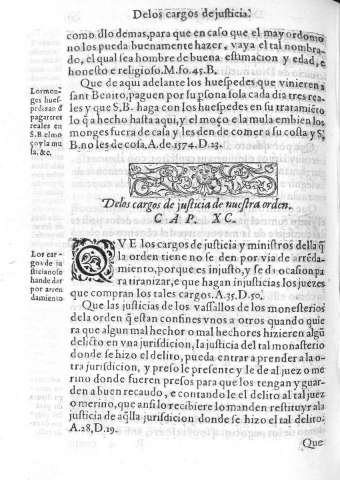 De los cargos de justicia.
como dlo demas, para que en caso que el mayordomo
no los pueda buenamente hazer, vaya el tal nombra-
do, el qual sea hombre de buena estimacion y edad, e
honesto e religioso. M. fo. 45. B.
Que de aqui adelante los huespedes que vinieren a
sant Benito, paguen por su psona sola cada dia tres rea-
les y que S.B. haga con los huespedes en su tratamiẽto
lo q̃ a hecho hasta aqui, y el moço e la mula embien los
monges fuera de casa y les den de comer a su costa y S.
B. no les de cosa. A. de 1574. D. 23.
Los mon-
ges hues-
pedes a d
pagar tres
reales en
S.B. el mo
ço y la mu
la. &c.
De los cargos de justicia de nuestra orden.
CAP. XC.
QVE los cargos de justicia y ministros della q̃
la orden tiene no se den por via de arrẽda-
miento, porque es injusto, y se da ocasion pa
ra tiranizar, e que hagan injusticias los juezes
que compran los tales cargos. A. 35. D. 50.
Los car-
gos de ju
sticia no se
han de dar
por arren
damiento
Que las justicias de los vasallos de los monesterios
de la orden q̃ estan confines vnos a otros quando quie
ra que algun mal hechor o mal hechores hizieren algũ
delicto en vna jurisdicion, la justicia del tal monasterio
donde se hizo el delito, pueda entrar a prender a la o-
tra jurisdicion, y preso le presente y le de al juez o me
rino donde fueren presos para que los tengan y guar-
den a buen recaudo, e contando le el delito al tal juez
o merino, que ansi lo recibiere lo manden restituyr a la
justicia de aq̃lla jurisdicion donde se hizo el tal delito.
A. 28, D. 19.
Que